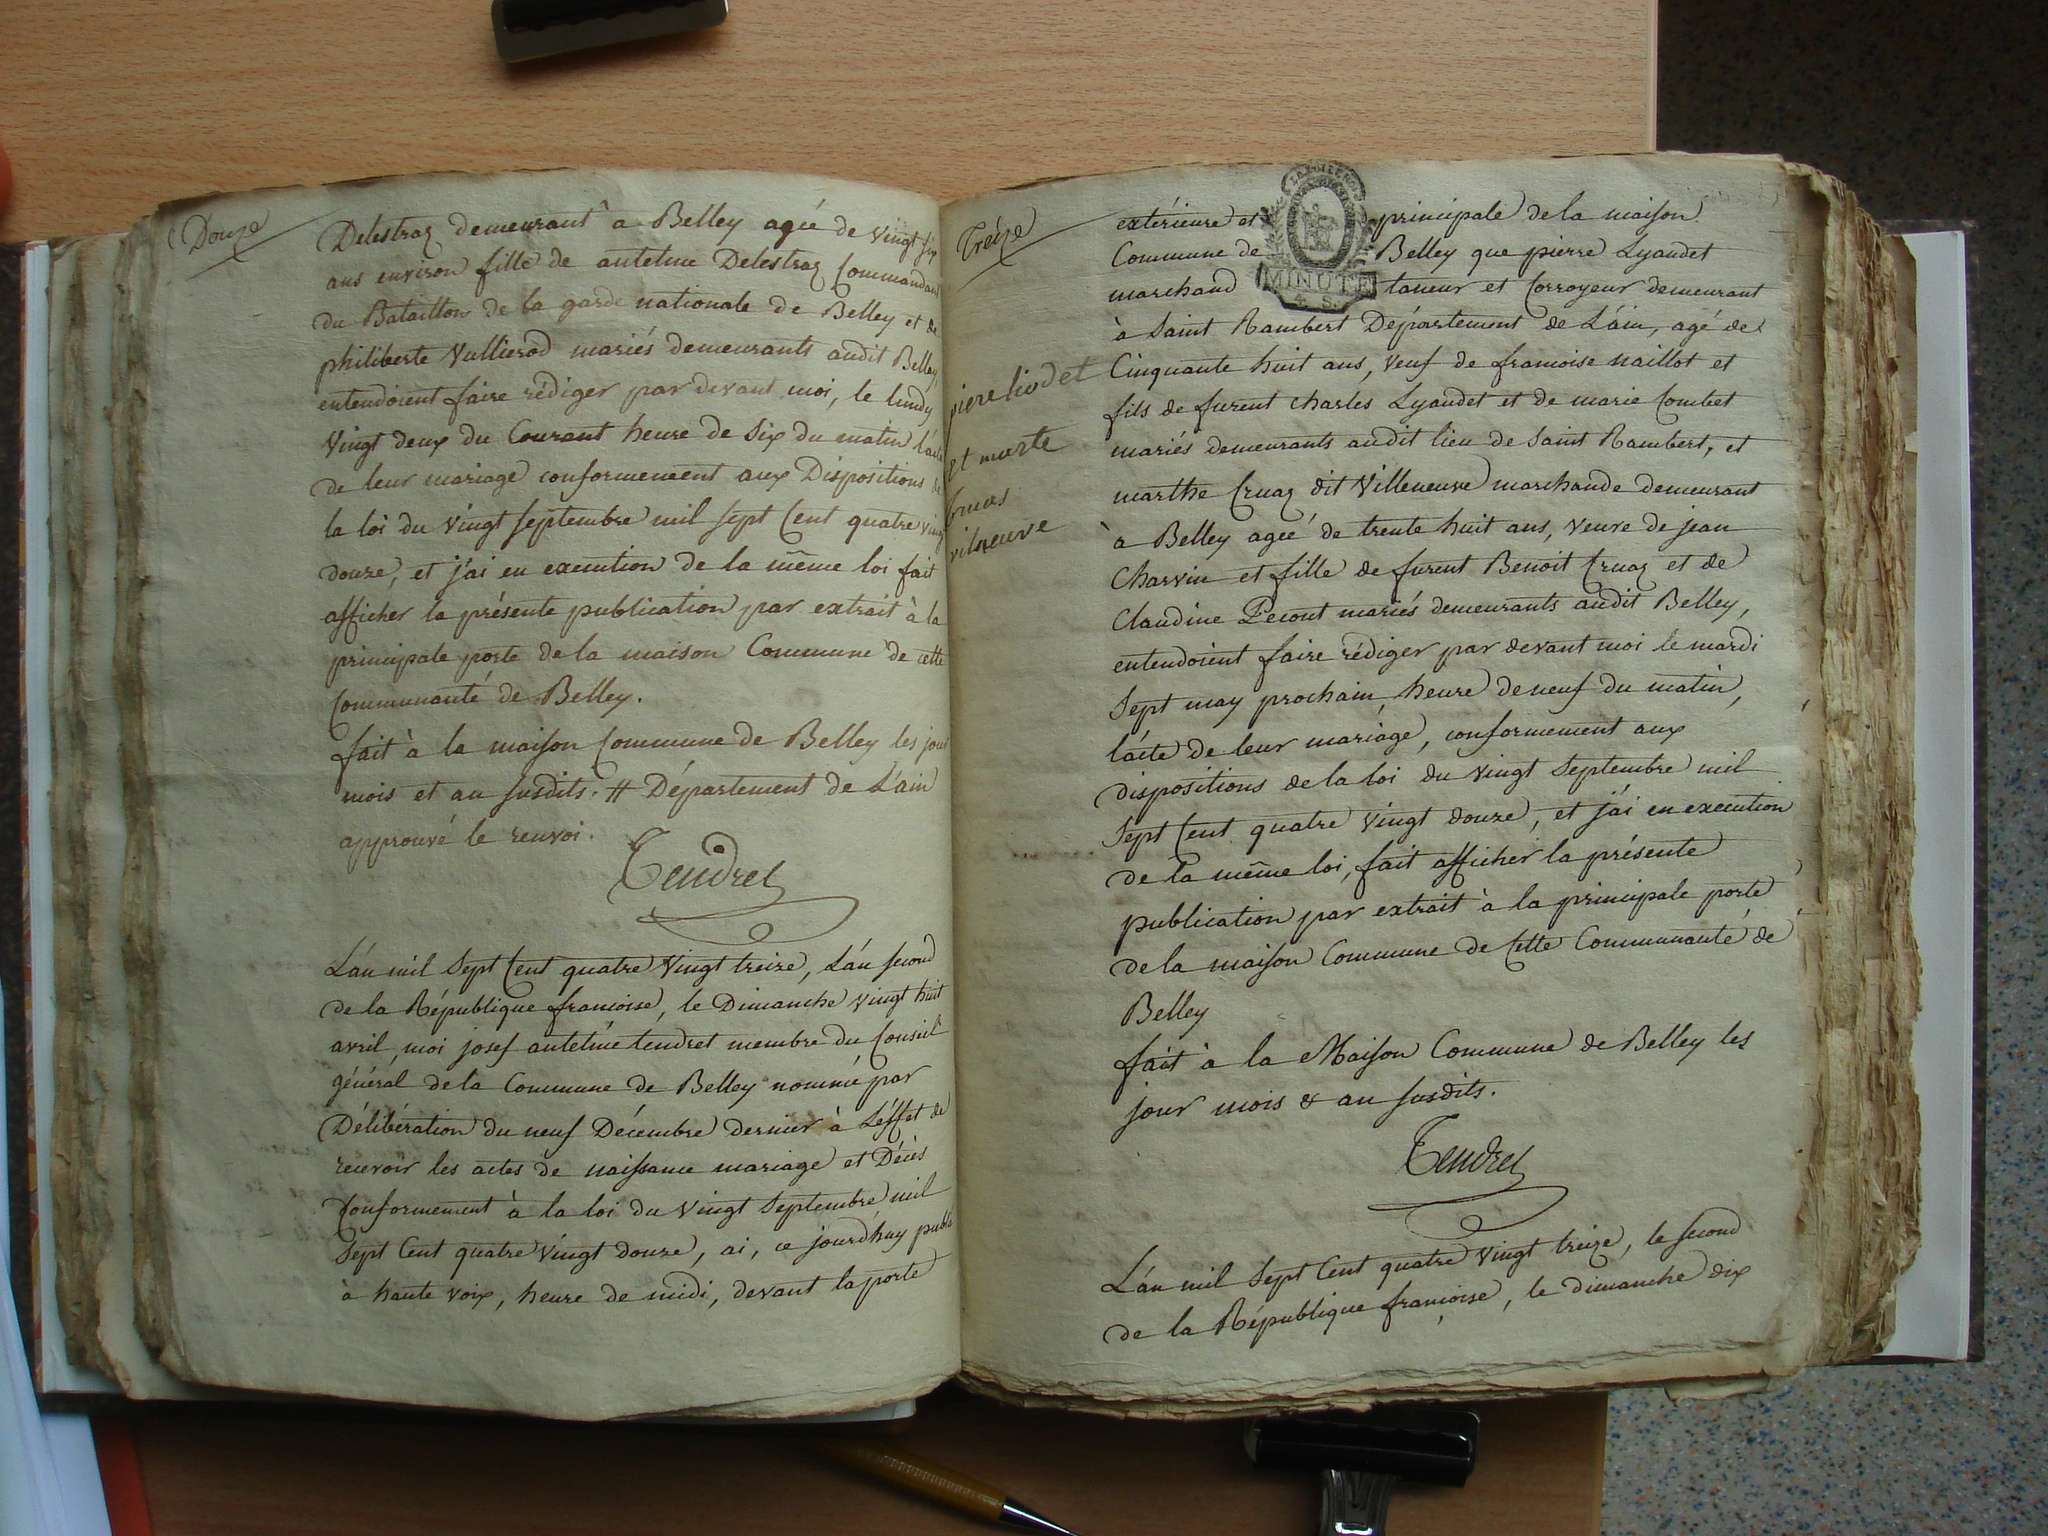 Douze
Delestraz demeurant à Belley agée de Vingt six
ans environ fille de antelme Delestraz Commandant
du Bataillon de la garde nationale de Belley et de
philiberte Vullierod mariés demeurants audit Belley
entendoient faire rédiger par devant moi, le lundy
Vingt deux du Courant heure de Six du matin l'acte
de leur mariage conformement aux Dispositions de
la loi du Vingt Septembre mil Sept Cent quatre Vingt
douze, et j'ai en execution de la même loi fait
afficher la présente publication par extrait à la
principale porte de la maison Commune de cette
Communauté de Belley.
fait à la maison Commune de Belley les jour
mois et an susdits. # Département de L'ain
approuvé le renvoi.
Tendret
L'an mil Sept Cent quatre Vingt treize, L'an second
de la République francoise, le Dimanche Vingt huit
avril, moi josef antelme tendret membre du Conseil
général de la Commune de Belley nommé par
Délibération du neuf Décembre dernier à L'éffet de
recevoir les actes de naissance mariage et Décès
Conformement à la loi du Vingt Septembre mil
Sept Cent quatre Vingt douze, ai, ce jourd'huy publié
à haute voix, heure de midi, devant la porte
Treize
extérieure et principale de la maison
Commune de Belley que pierre Lyaudet
marchand taneur et Corroyeur demeurant
MINUTE
4. S.
à Saint Rambert Département de L'ain, agé de
Cinquante huit ans, veuf de francoise naillot et
fils de furent Charles Lyaudet et de marie Combet
mariés demeurants audit lieu de Saint Rambert, et
marthe Cruaz dit Villeneuve marchande demeurant
à Belley ageé de trente huit ans, veuve de jean
Charvin et fille de furent Benoit Cruaz et de
Claudine Pecont mariés demeurants audit Belley,
entendoient faire rédiger par devant moi le mardi
Sept may prochain, heure de neuf du matin,
l'acte de leur mariage, conformement aux
dispositions de la loi du vingt Septembre mil
Sept Cent quatre Vingt douze, et j'ai en execution
de la même loi, fait afficher la présente
publication par extrait à la principale porte
de la maison Commune de Cette Communauté de
Belley
fait à la Maison Commune de Belley les
jour mois & an susdits.
Tendret
L'an mil Sept Cent quatre Vingt treize, le second
de la République francoise, le dimanche dix
piere liodet
et marte
vileneuve